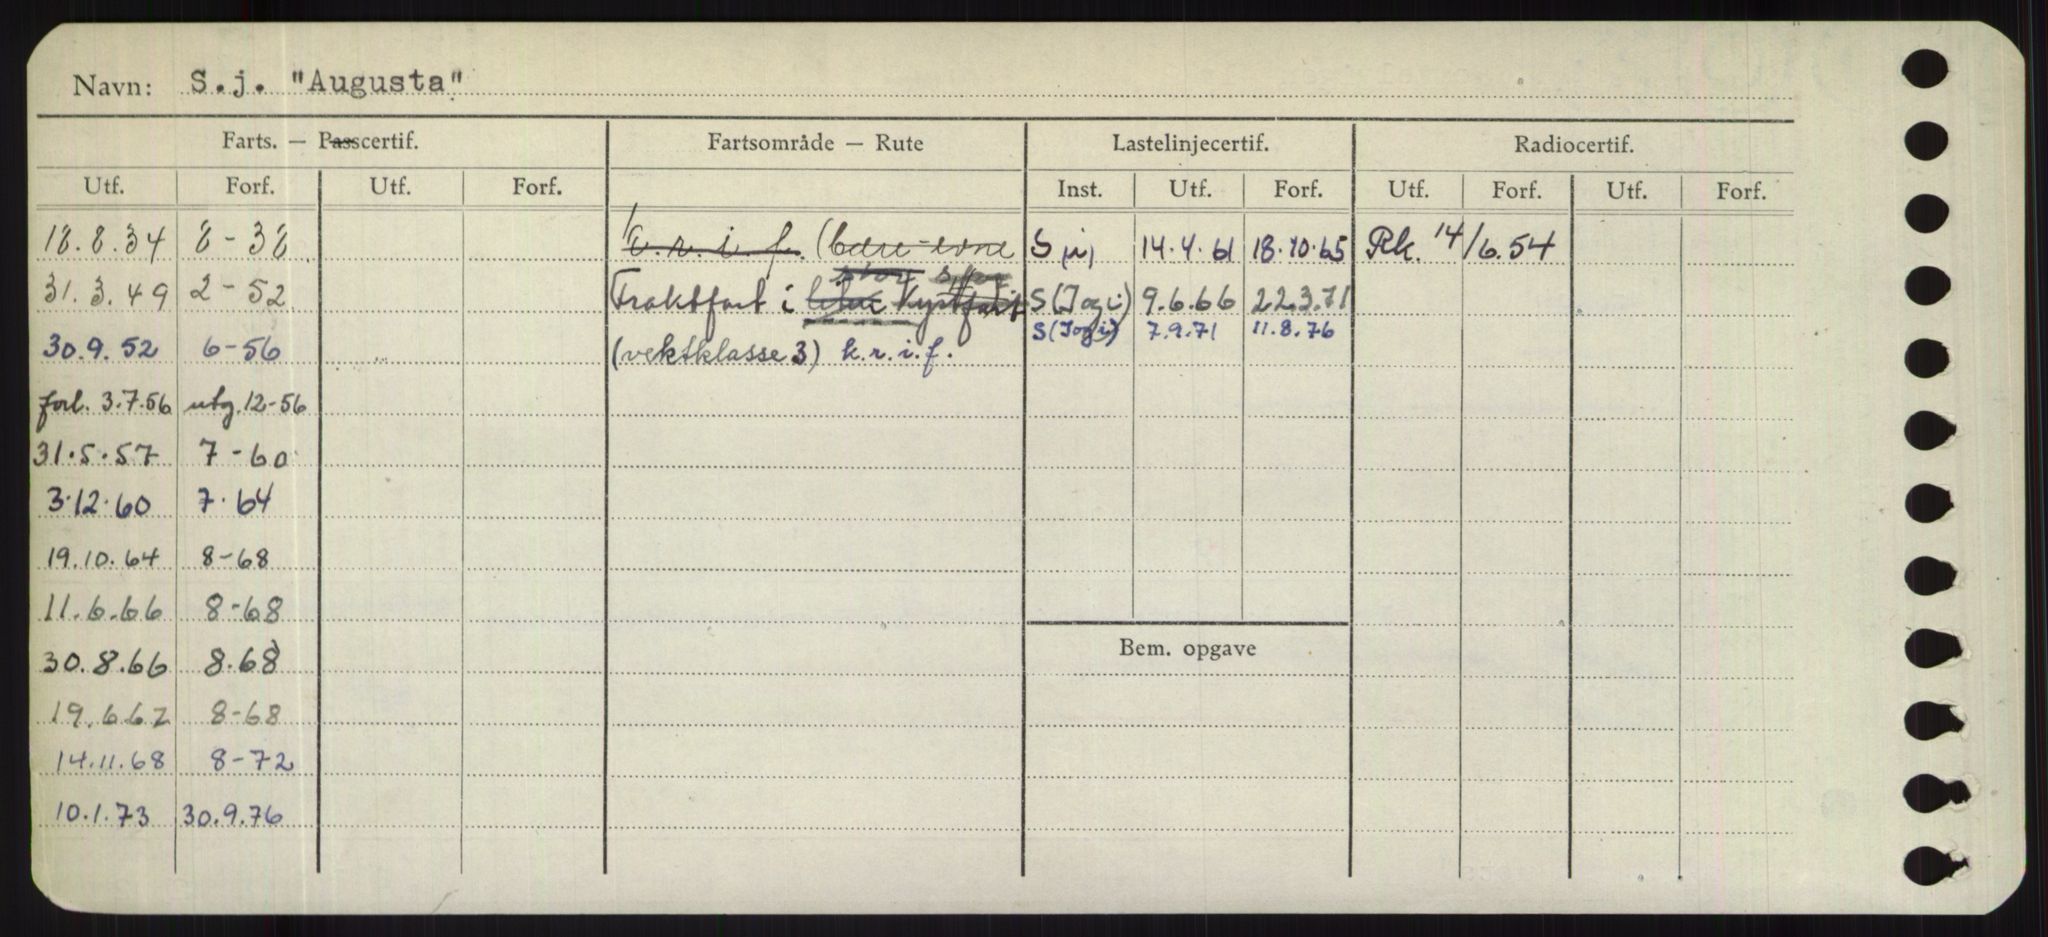 Navn: S.j. "Augusta"
Farts. — Passcertif. Fartsområde — Rute Lastelinjecertif. Radiocertif.
Utf. Forf. Utf. Forf. Inst. Utf. Forf. Utf. Forf. Utf. Forf.
18.8.34 8-38 k.r.i.f. (bære-evne S (i) 14.4.61 18.10.65 Rk. 14/6.54
stor
31.3.49 2-52 Fraktfart i liten Kystfart S (J og i) 9.6.66 22.3.71
S (J og i) 7.9.71 11.8.76
30.9.52 6-56 " (vektklasse 3) k.r.i.f.
forl. 3.7.56 utg. 12-56
31.5.57 7-60
3.12.60 7.64
19.10.64 8-68
11.6.66 8-68
Bem. opgave
30.8.66 8.68
19.6.67 8-68
14.11.68 8-72
10.1.73 30.9.76